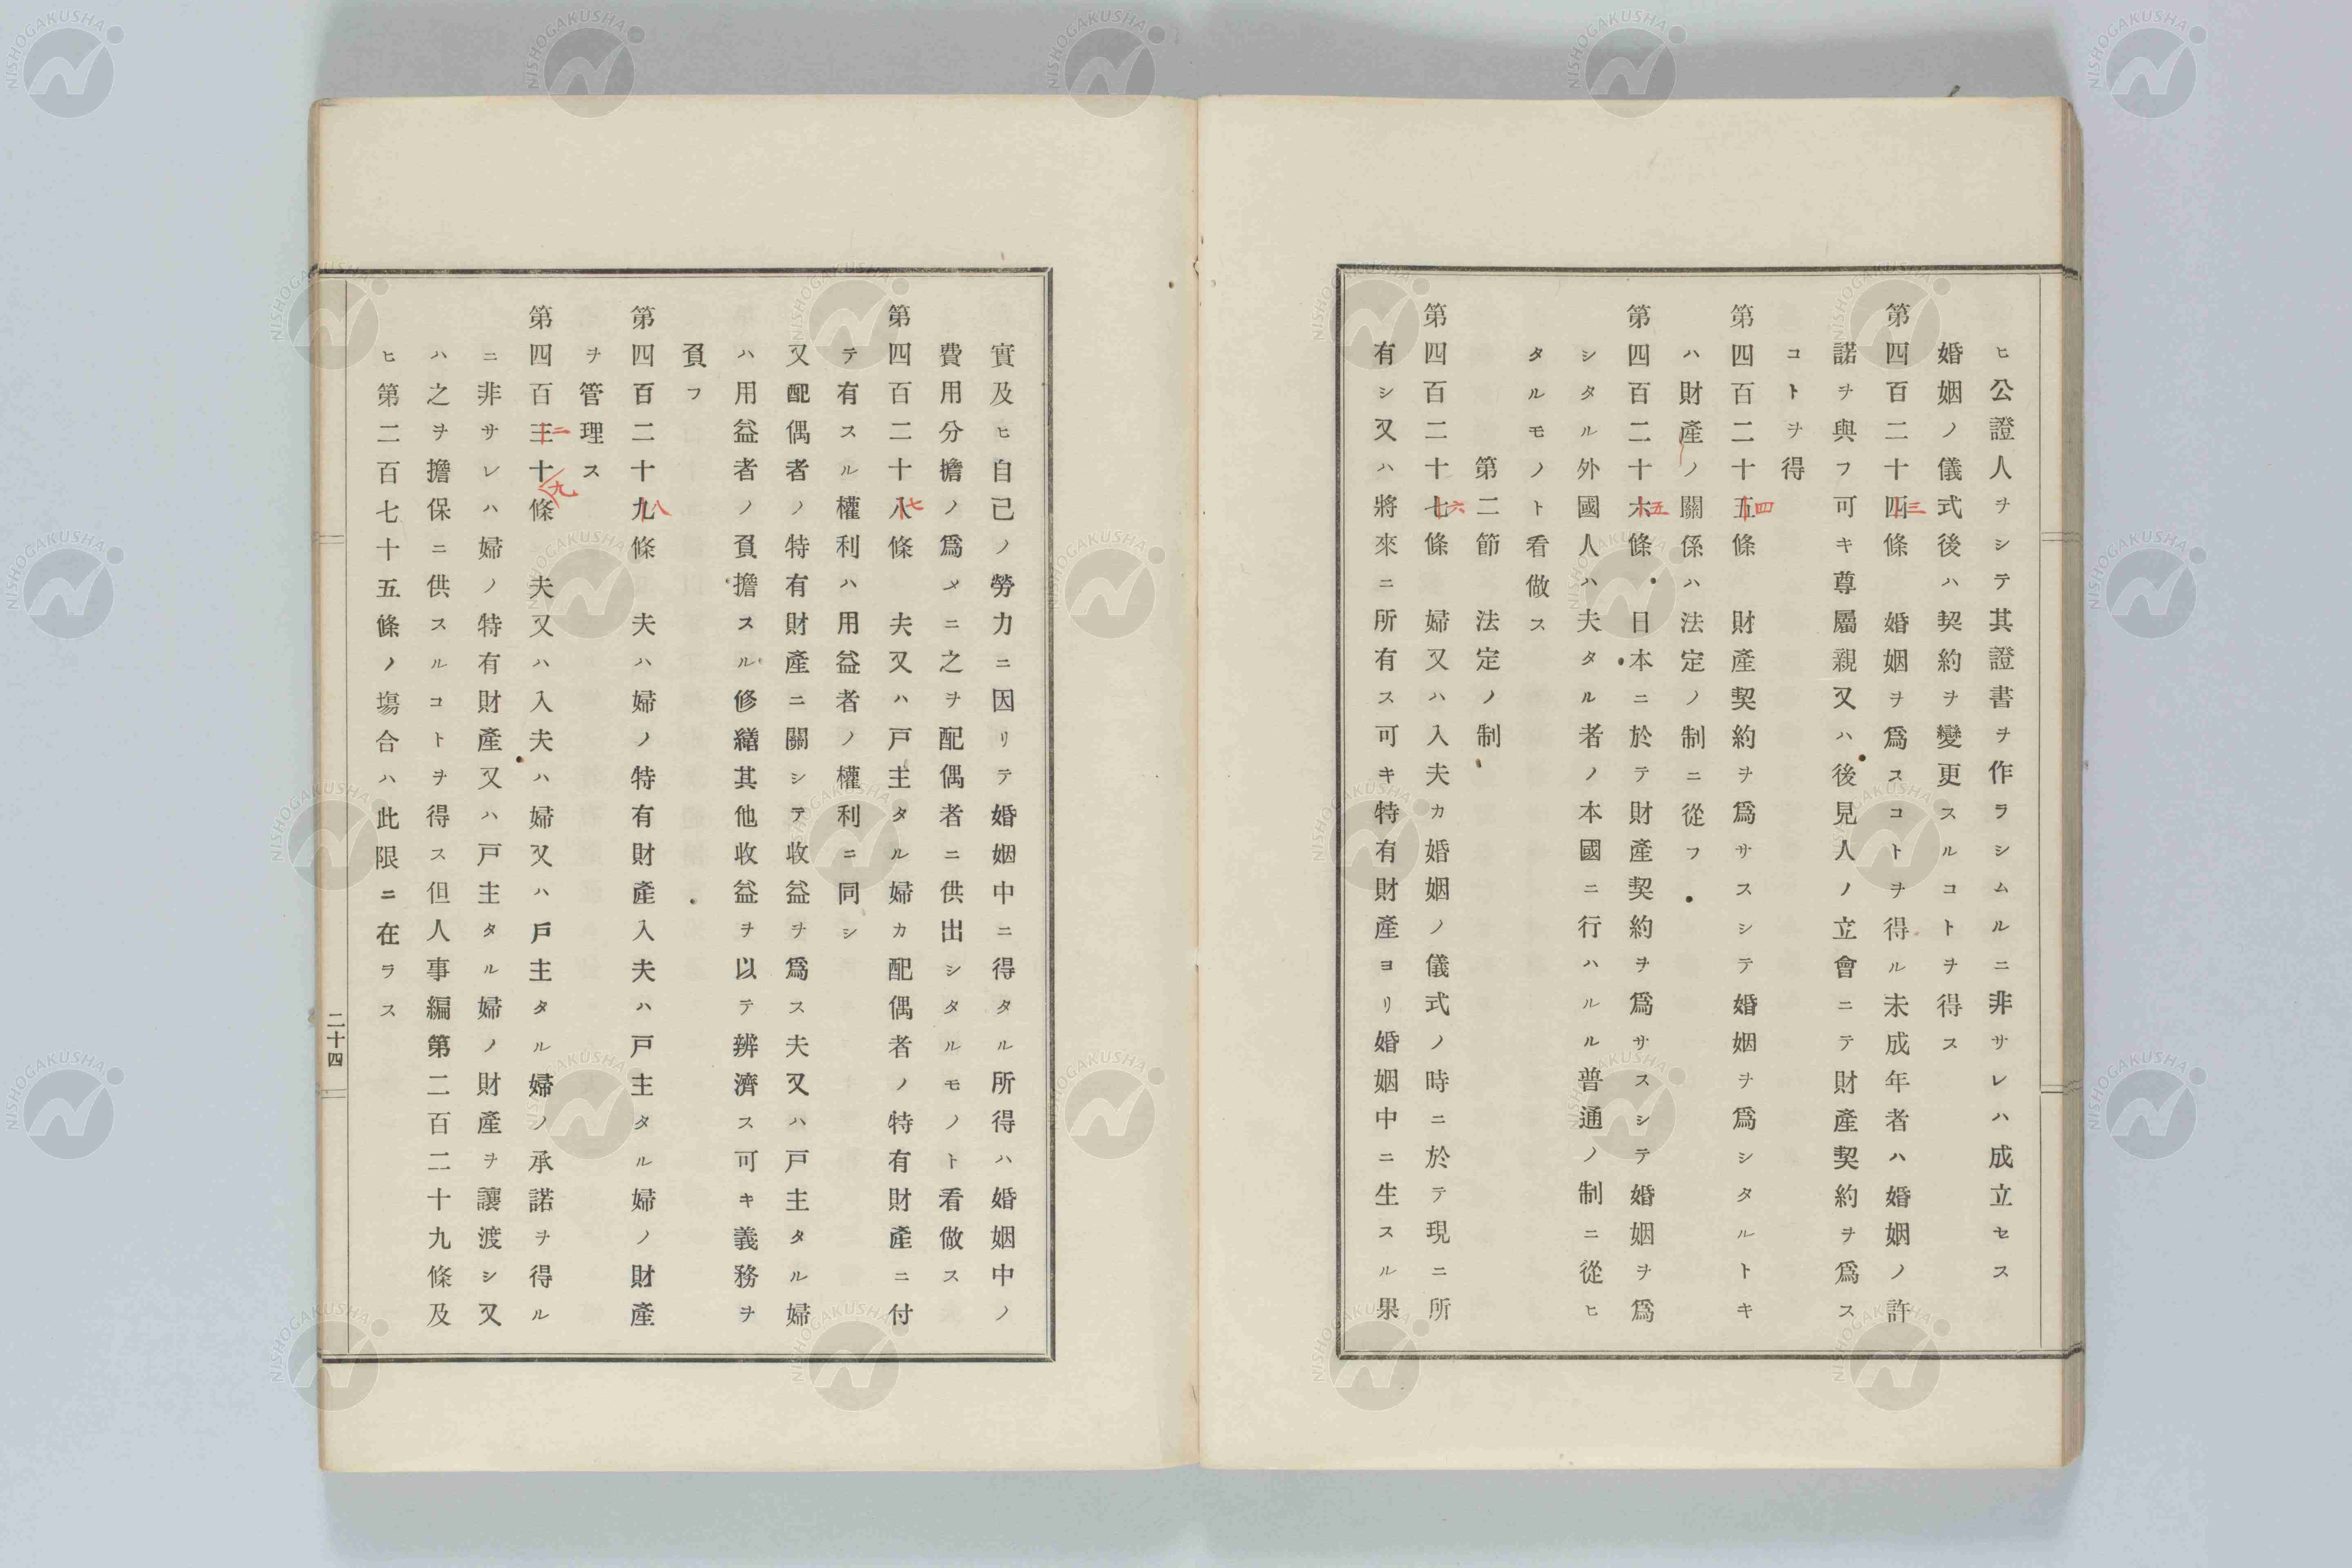 ヒ公證人ヲシテ其證書ヲ作ラシムルニ非サレハ成立セス
婚姻ノ儀式後ハ契約ヲ變更スルコトヲ得ス
第四百二十四條　婚姻ヲ爲スコトヲ得ル未成年者ハ婚姻ノ許
三
諾ヲ與フ可キ尊屬親又ハ後見人ノ立會ニテ財產契約ヲ爲ス
コトヲ得
第四百二十五條　財產契約ヲ爲サスシテ婚姻ヲ爲シタルトキ
四
ハ財產ノ關係ハ法定ノ制ニ從フ
第四百二十六條　日本ニ於テ財產契約ヲ爲サスシテ婚姻ヲ爲
五
シタル外國人ハ夫タル者ノ本國ニ行ハルル普通ノ制ニ從ヒ
タルモノト看做ス
第二節　法定ノ制
第四百二十七條　婦又ハ入夫カ婚姻ノ儀式ノ時ニ於テ現ニ所
六
有シ又ハ將來ニ所有ス可キ特有財產ヨリ婚姻中ニ生スル果
實及ヒ自己ノ勞力ニ因リテ婚姻中ニ得タル所得ハ婚姻中ノ
費用分擔ノ爲メニ之ヲ配偶者ニ供出シタルモノト看做ス
第四百二十八條　夫又ハ戸主タル婦カ配偶者ノ特有財產ニ付
七
テ有スル權利ハ用益者ノ權利ニ同シ
又配偶者ノ特有財產ニ關シテ收益ヲ爲ス夫又ハ戸主タル婦
ハ用益者ノ負擔スル修繕其他收益ヲ以テ辨濟ス可キ義務ヲ
負フ
第四百二十九條　夫ハ婦ノ特有財產入夫ハ戸主タル婦ノ財產
八
ヲ管理ス
第四百三十條　夫又ハ入夫ハ婦又ハ戸主タル婦ノ承諾ヲ得ル
二
九
ニ非サレハ婦ノ特有財產又ハ戸主タル婦ノ財產ヲ讓渡シ又
ハ之ヲ擔保ニ供スルコトヲ得ス但人事編第二百二十九條及
ヒ第二百七十五條ノ塲合ハ此限ニ在ラス
二十四
NISHOGAKUSHA